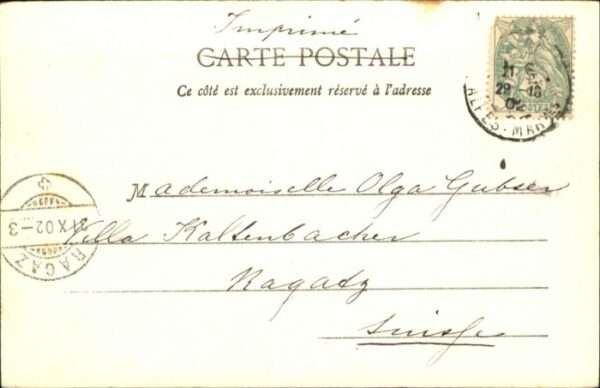 Imprimé
CARTE POSTALE
Ce côté est exclusivement réservé à l'adresse
ALPES-MAR
02
Mademoiselle Olga Gubser
Villa Kaltenbacher
Ragatz
Suisse
X.02-3
RAGAZ